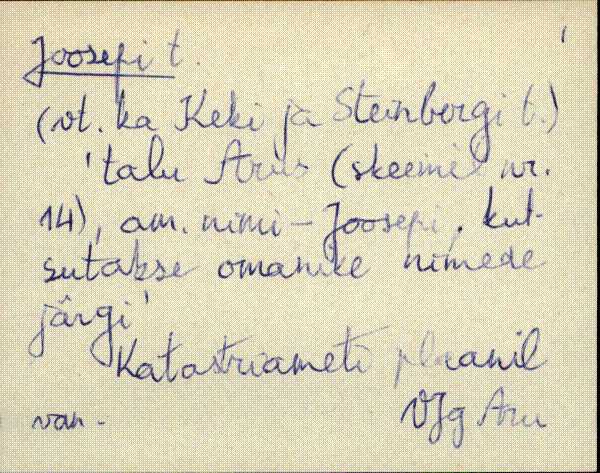 Joosepi t.
(vt. ka Keki ja Steinbergi t.)
'talu Arus (skeemil nr.
14), am. nimi – Joosepi, kut-
sutakse omanike nimede
järgi'
Katastriameti plaanil
van. VJg Aru